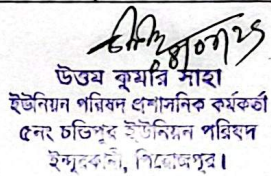 উত্তম কুমার সাহা
ইউনিয়ন পরিষদ প্রশাসনিক কর্মকর্তা
৫নং চন্ডিপুর ইউনিয়ন পরিষদ
ইন্দুরকানী, পিরোজপুর।